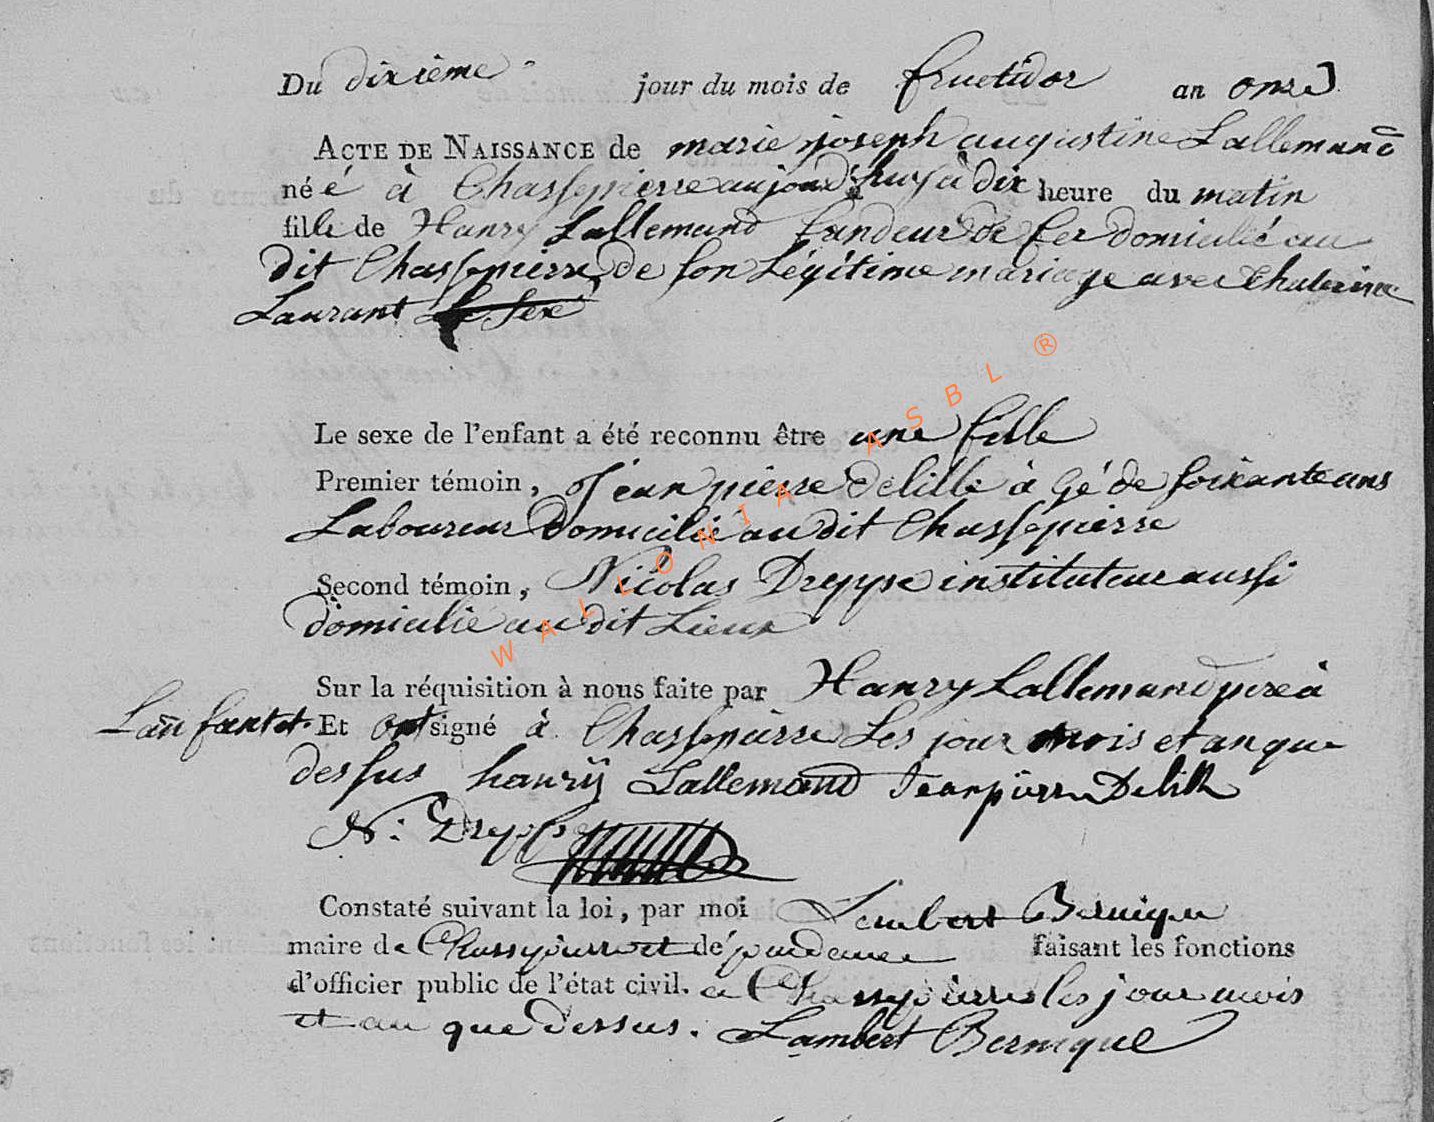 Du dixième jour du mois de fructidor an onze
ACTE DE NAISSANCE de marie joseph augustine Lallemand
né é à Chassepierre aujourd'huy à dix heure du matin
fille de Hanry Lallemand fandeur de fer domicilié au
dit Chassepierre de son Légitime mariage avec Chaterine
Laurant Le sexe
Le sexe de l'enfant a été reconnu être une fille
Premier témoin, Jean pierre Delille à Gé de soixante ans
Laboureur domicilié au dit Chassepierre
Second témoin, Nicolas Dreppe instituteur aussi
domicilié au dit Lieux
Sur la réquisition à nous faite par Hanry Lallemand pere à
L'anfant et. Et ont signé à Chassepierre Les jour mois et an que
dessus hanrÿ Lallemand Jean pierre Delille
N. Dreppe
Constaté suivant la loi, par moi Lembert Bernique
maire de Chassepierre et dépendance faisant les fonctions
d'officier public de l'état civil. a Chassepierre les jour mois
et an que dessus. Lambert Bernique
WALLONIA ASBL ®